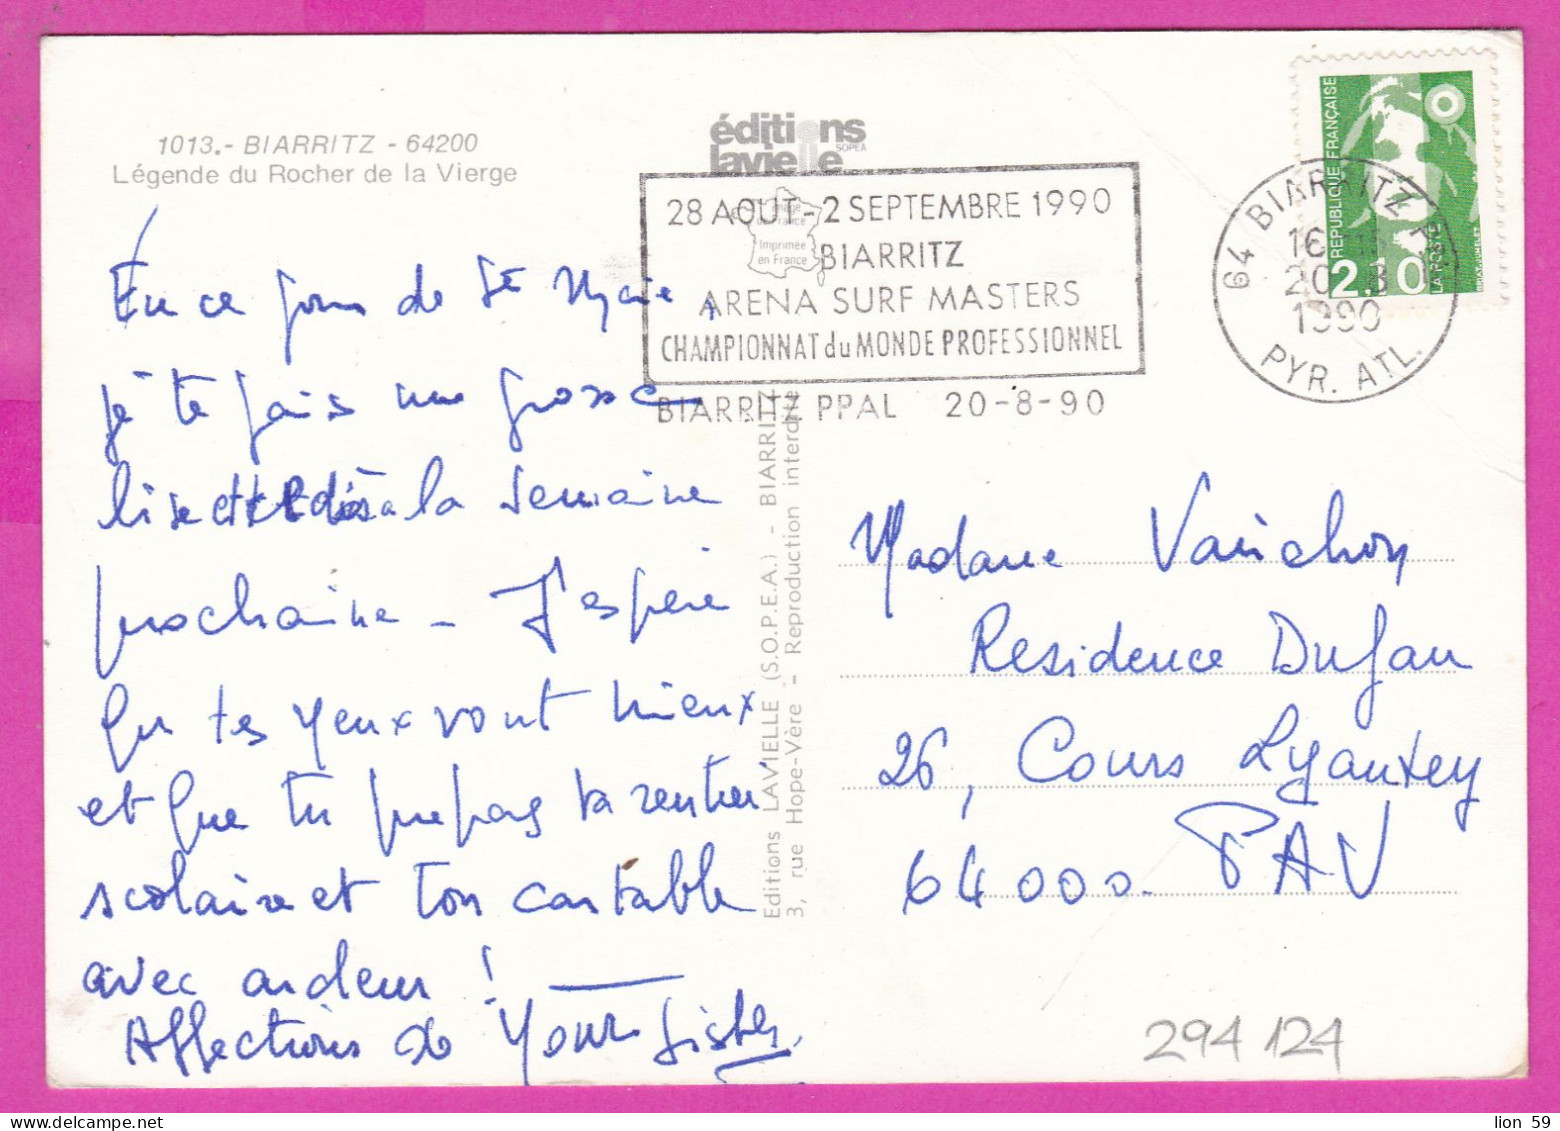 1013.- BIARRITZ - 64200
Légende du Rocher de la Vierge
éditions
lavielle
SOPEA
Image
de France
Imprimée
en France
28 AOUT - 2 SEPTEMBRE 1990
BIARRITZ
ARENA SURF MASTERS
CHAMPIONNAT du MONDE PROFESSIONNEL
BIARRITZ PPAL 20-8-90
64 BIARRITZ
20-8
1990
PYR. ATL.
REPUBLIQUE FRANÇAISE
2.10
LA POSTE
En ce jour de Ste Marie,
je te fais une grosse
bise et te dis à la semaine
prochaine - J'espère
que tes yeux vont mieux
et que tu prépares ta rentrée
scolaire et ton cartable
avec ardeur !
Affections de Your Sister.
Editions LAVIELLE (S.O.P.E.A.) - BIARRITZ
3, rue Hope-Vère - Reproduction interdite
Madame Vauichon
Residence Dufau
26, Cours Lyautey
64000. PAU
294 124
lion 59